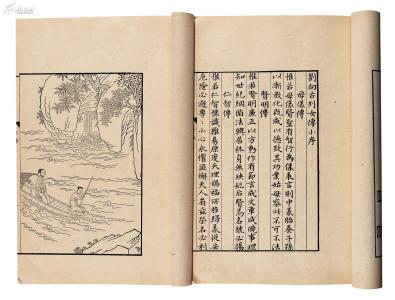 劉向古列女傳小序
母儀傳
惟若母儀賢聖有智行為儀表言則中義胎養子孫
以漸教化既成以德致其功業姑母察此不可不法
賢明傳
惟若賢明廉正以方動作有節言成文章咸曉事理
知世紀綱循法興居終身無殃妃后賢焉名號必揚
仁智傳
惟若仁智豫識難易原度天理禍福所移歸義從安
危險必避專專小心永懼匪懈夫人省茲榮名必利